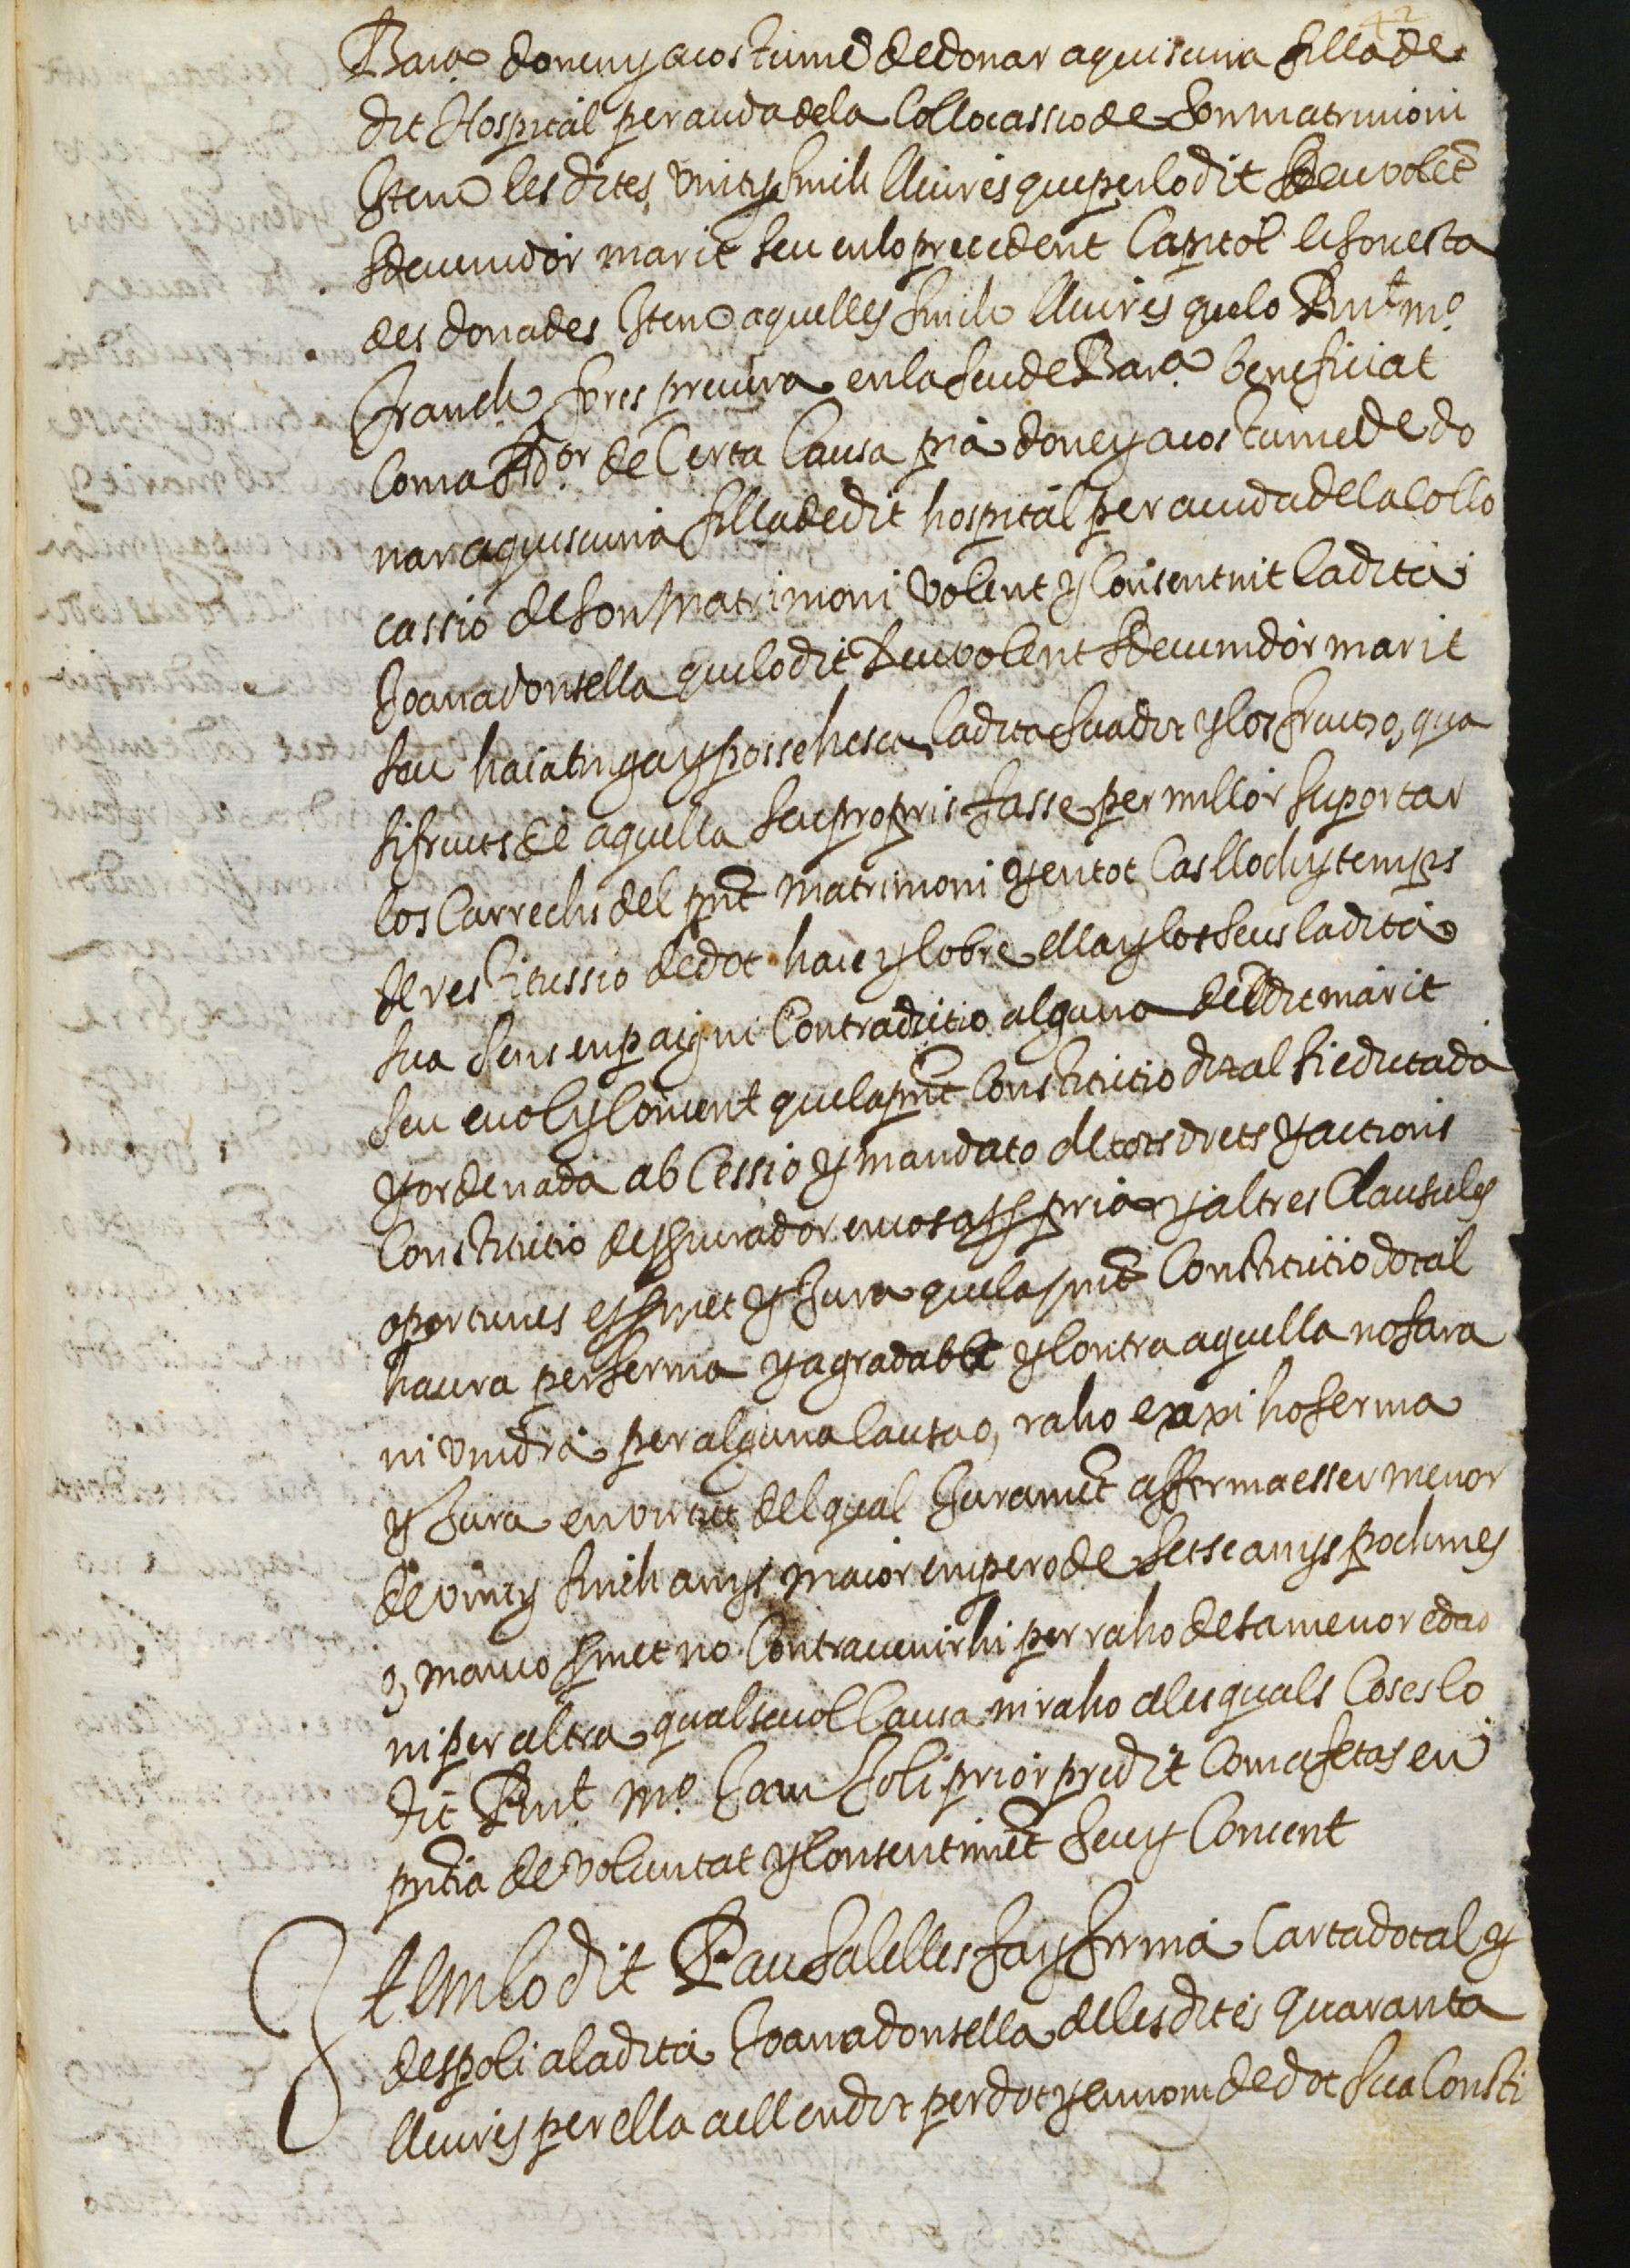 42
Bar.ª doneny acostume de donar a quiscuna filla de
dit Hospital per aiuda de la Collocassio de Son matrimoni
Item les dites vinty Sinch lliures que per lo dit
Sdevenidor marit Seu en lo precedent Capitol li son esta
des donades Item aquelles Sinch lliures que lo Rnt m.º
Franch fores prevera en la Seu de Bar.ª beneficiat
Com a Ad.or de Certa Causa pia done y acostume de do
nar a quiscuna filla de dit hospital per aiuda de la collo
cassio de Son Matrimoni Volent y Consentint la dita
Joana donsella que lo dit benvolent Sdevenidor marit
Seu haia tinga y possehesca la dita Sua dot y los fruits, qua
si fruits de aquella Seus propris fasse per millor Suportar
los Carrechs del pnt Matrimoni y en tot Cas lloch y temps
de restitussio de dot haie y Cobre ella y los Seus la dita
Sua Sens enpaig ni Contradictio alguna del dit marit
Seu e vol y Consent que la pnt Constitutio dotal sie dictada
y ordenada ab Cessio y mandato de tots drets y actions
Constitutio de procurador en cosa propria y altres Clausules
oportunes e promet y Jura que la pnt Constitutio dotal
haura per ferma y agradable y Contra aquella no fara
ni vindra per alguna Causa o, raho e axi ho ferma
y Jura en virtut del qual Jurament afferma esser menor
de vinty Sinch anys maior empero de Setse anys poch mes
o, manco promet no Contravenirhi per raho de sa menor edad
ni per altra qualsevol Causa ni raho a les quals Coses lo
dit Rnt m.º Joan Soli prior predit Com a fetas en
pntia de voluntat y Consentiment Seu y Concent
Item lo dit Pau Salelles fa y ferma Carta dotal y
de spoli a la dita Joana donsella de les dites quaranta
lliures per ella a ell en dot per dot y en nom de dot Sua Consti